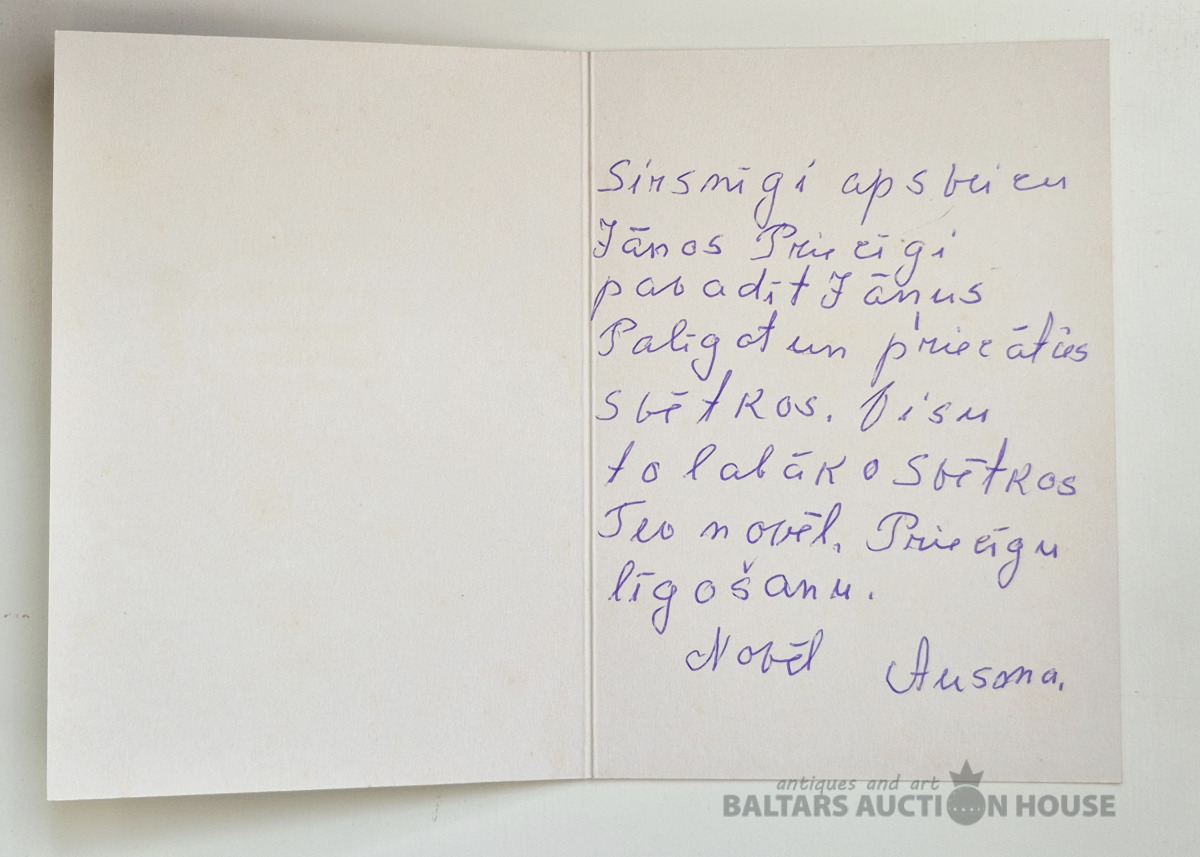 Sirsnīgi apsveicu
Jāņos Priecīgi
pavadīt Jāņus
Palīgot un priecāties
svētkos. Visu
to labāko Svētkos
Tev novēl. Priecīgu
līgošanu.
Novēl Ausma.
antiques and art
BALTARS AUCTION HOUSE